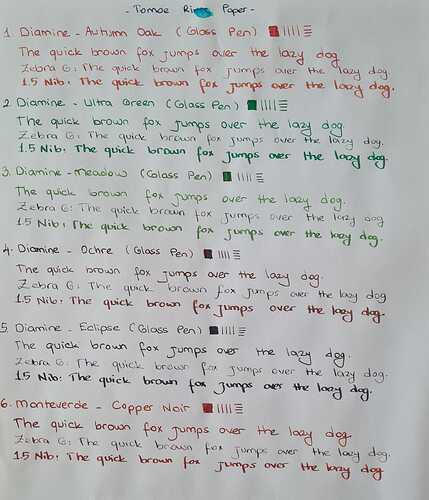 - Tomoe River Paper -
1. Diamine - Autumn Oak (Glass Pen)
The quick brown fox jumps over the lazy dog
Zebra G: The quick brown fox jumps over the lazy dog.
1.5 Nib: The quick brown fox jumps over the lazy dog.
2. Diamine - Ultra Green (Glass Pen)
The quick brown fox jumps over the lazy dog.
Zebra G: The quick brown fox jumps over the lazy dog.
1.5 Nib: The quick brown fox jumps over the lazy dog.
3. Diamine - Meadow (Glass Pen)
The quick brown fox jumps over the lazy dog.
Zebra G: The quick brown fox jumps over the lazy dog
1.5 Nib: The quick brown fox jumps over the lazy dog.
4. Diamine - Ochre (Glass Pen)
The quick brown fox jumps over the lazy dog.
Zebra G: The quick brown fox jumps over the lazy dog
1.5 Nib: The quick brown fox jumps over the lazy dog.
5. Diamine - Eclipse (Glass Pen)
The quick brown fox jumps over the lazy dog.
Zebra G: The quick brown fox jumps over the lazy dog.
1.5 Nib: The quick brown fox jumps over the lazy dog.
6. Monteverde - Copper Noir
The quick brown fox jumps over the lazy dog
Zebra G: The quick brown fox jumps over the lazy dog.
1.5 Nib: The quick brown fox jumps over the lazy dog